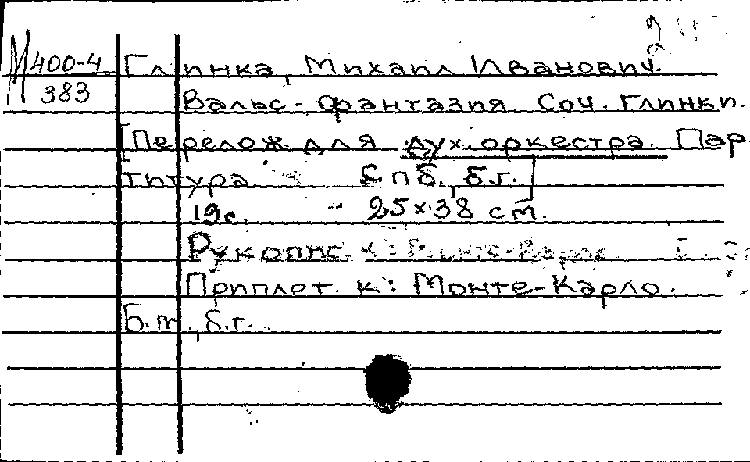 М 400-4
383
Глинка, Михаил Иванович.
Вальс-фантазия. Соч. Глинки.
[Перелож. для дух. оркестра. Пар
титура. Спб., б.г.]
19с. 25×38 см.
Рукопис.
Приплет. к: Монте-Карло.
Б.м., б.г.